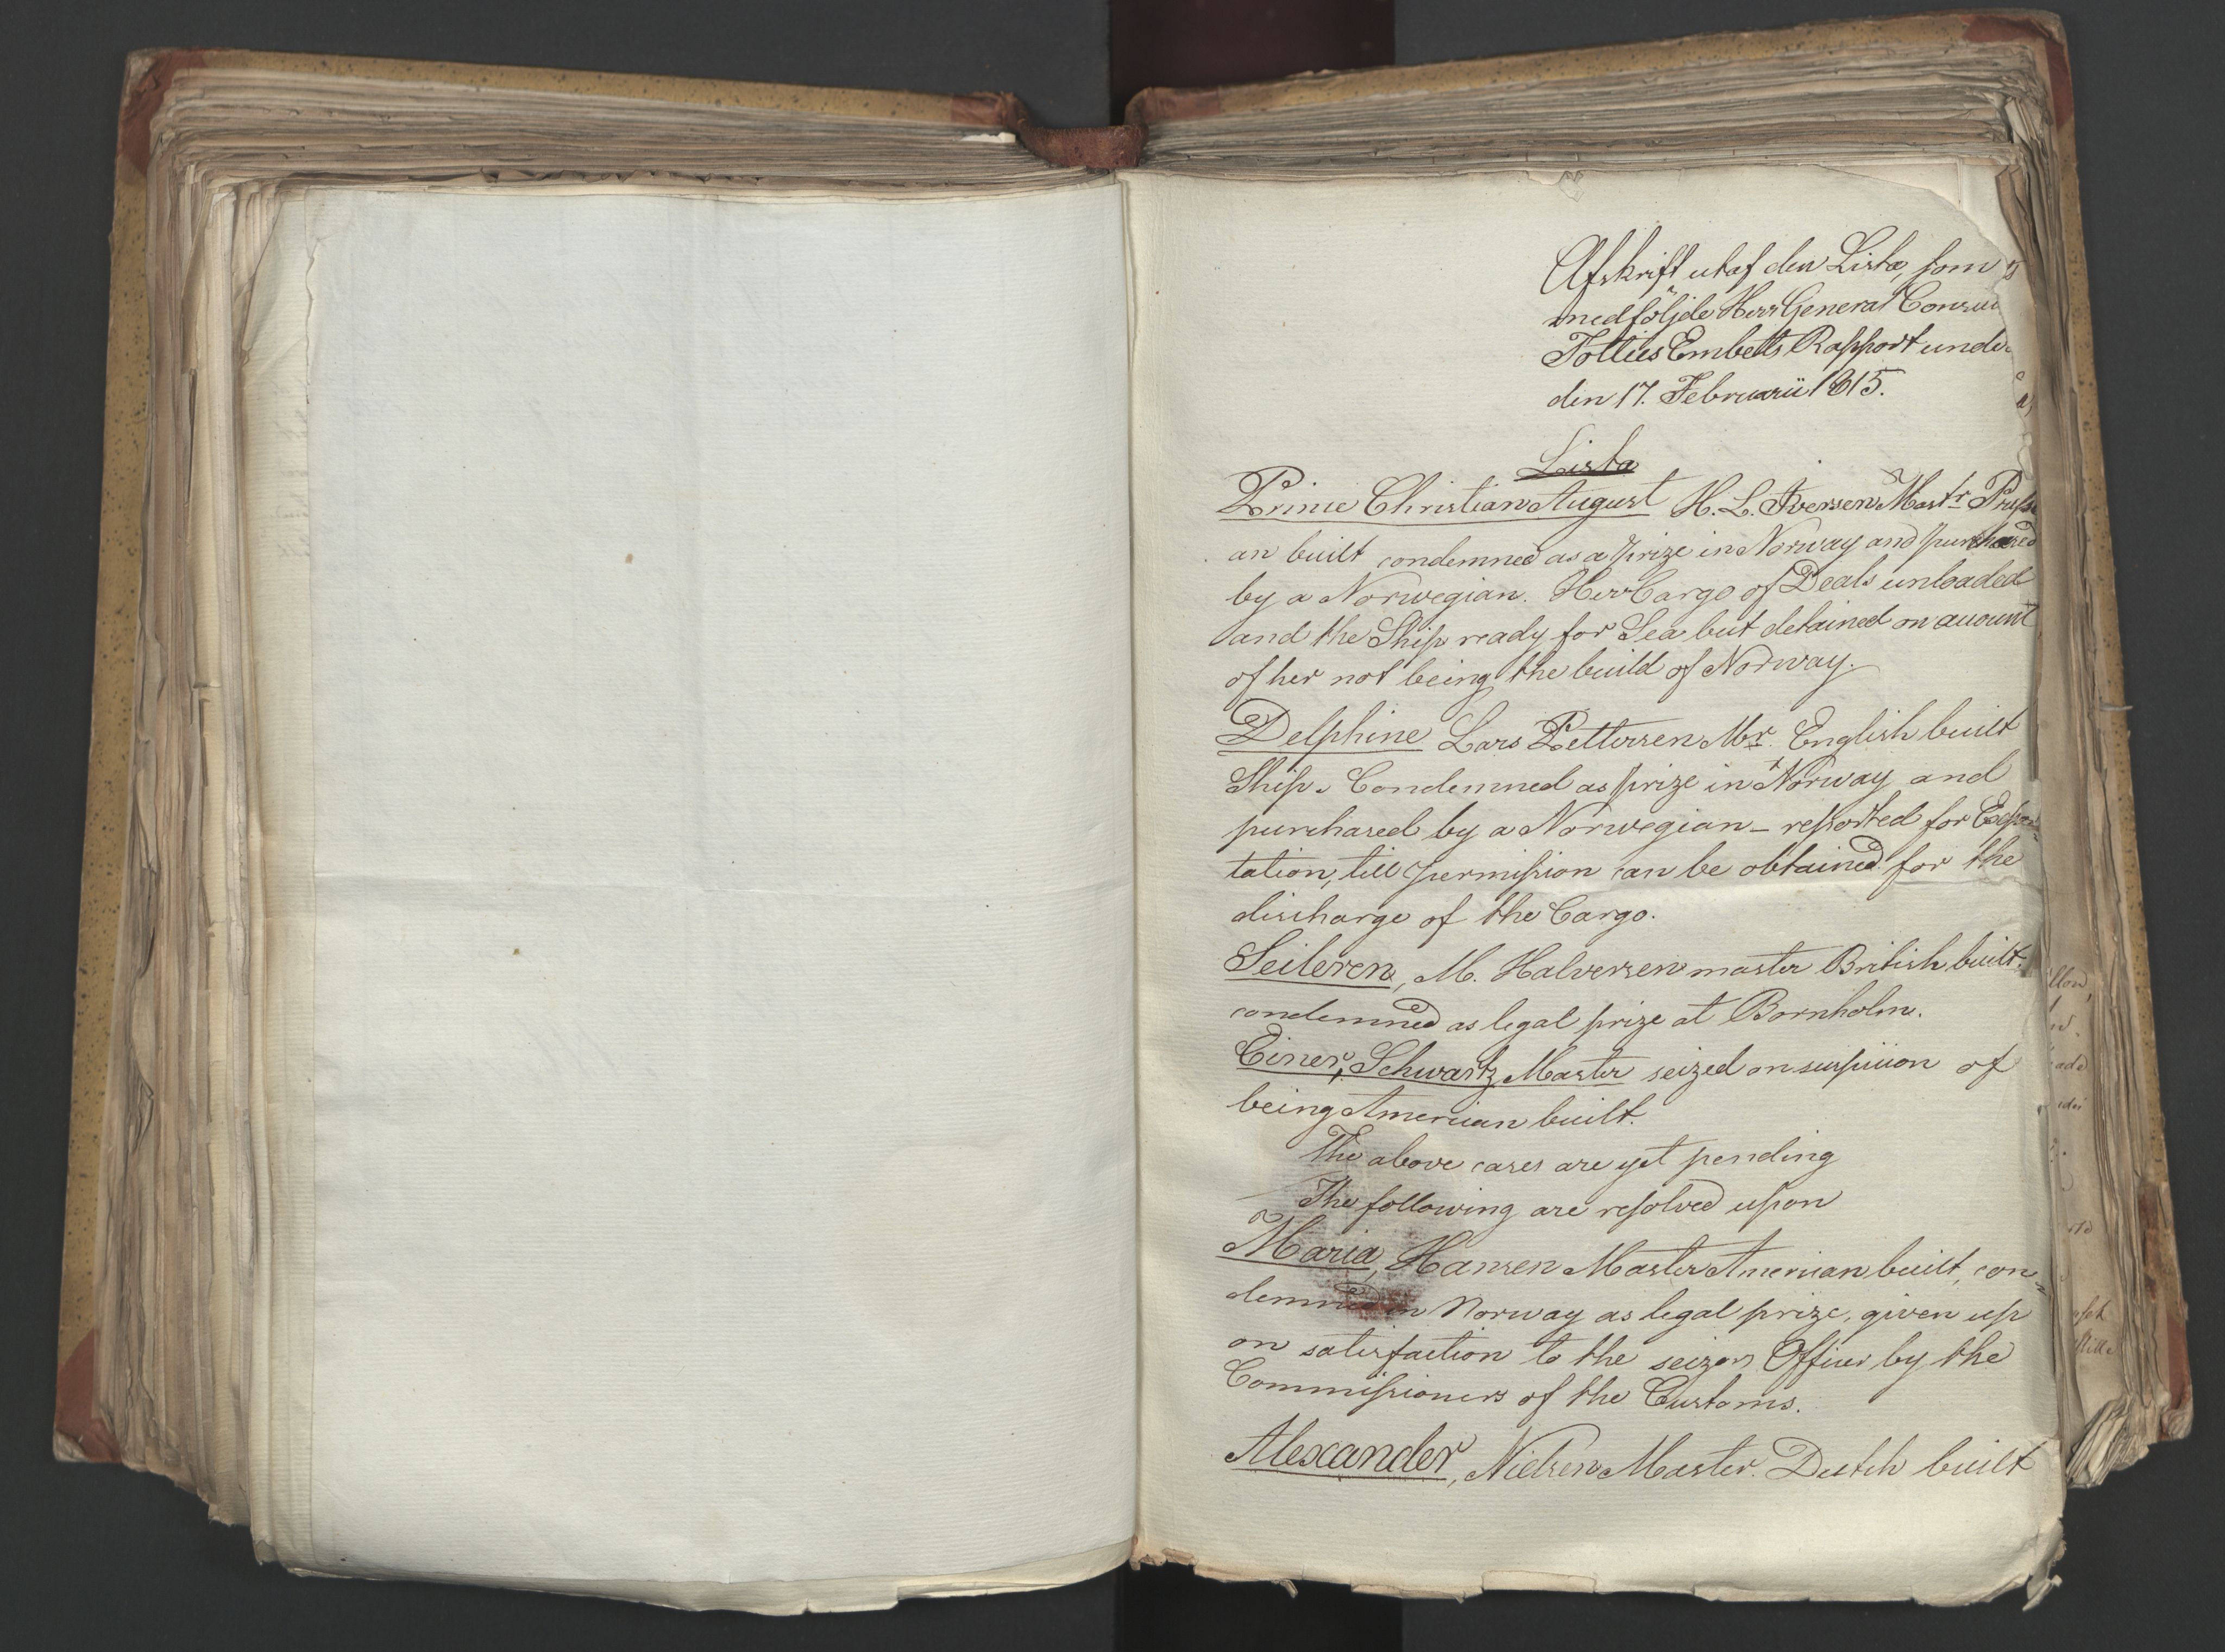 Afskrift utaf den Lista, som
medföljde Herr General Consul
Totties Embetts Rapport under
den 17. Februarii 1815.
Lista
Prince Christian August H. L. Iversen Mastr Prussi
an built condemned as a prize in Norway and purchased
by a Norwegian. Her Cargo of Deals unloaded
and the Ship ready for Sea but detained on account
of her not being the build of Norway.
Delphine Lars Pettersen Mr. English built
Ship. Condemned as prize in Norway and
purchased by a Norwegian – reported for Expor-
tation, till permission can be obtained for the
discharge of the Cargo.
Seileren, M. Halversen master British built.
condemned as legal prize at Bornholm.
Einer, Schwartz Master seized on suspicion of
being American built.
The above cases are yet pending
The following are resolved upon
Maria, Hansen Master American built, con-
demned in Norway as legal prize, given up
on satisfaction to the seizors Officer by the
Commissioners of the Customs.
Alexander, Nielsen Master. Dutch built